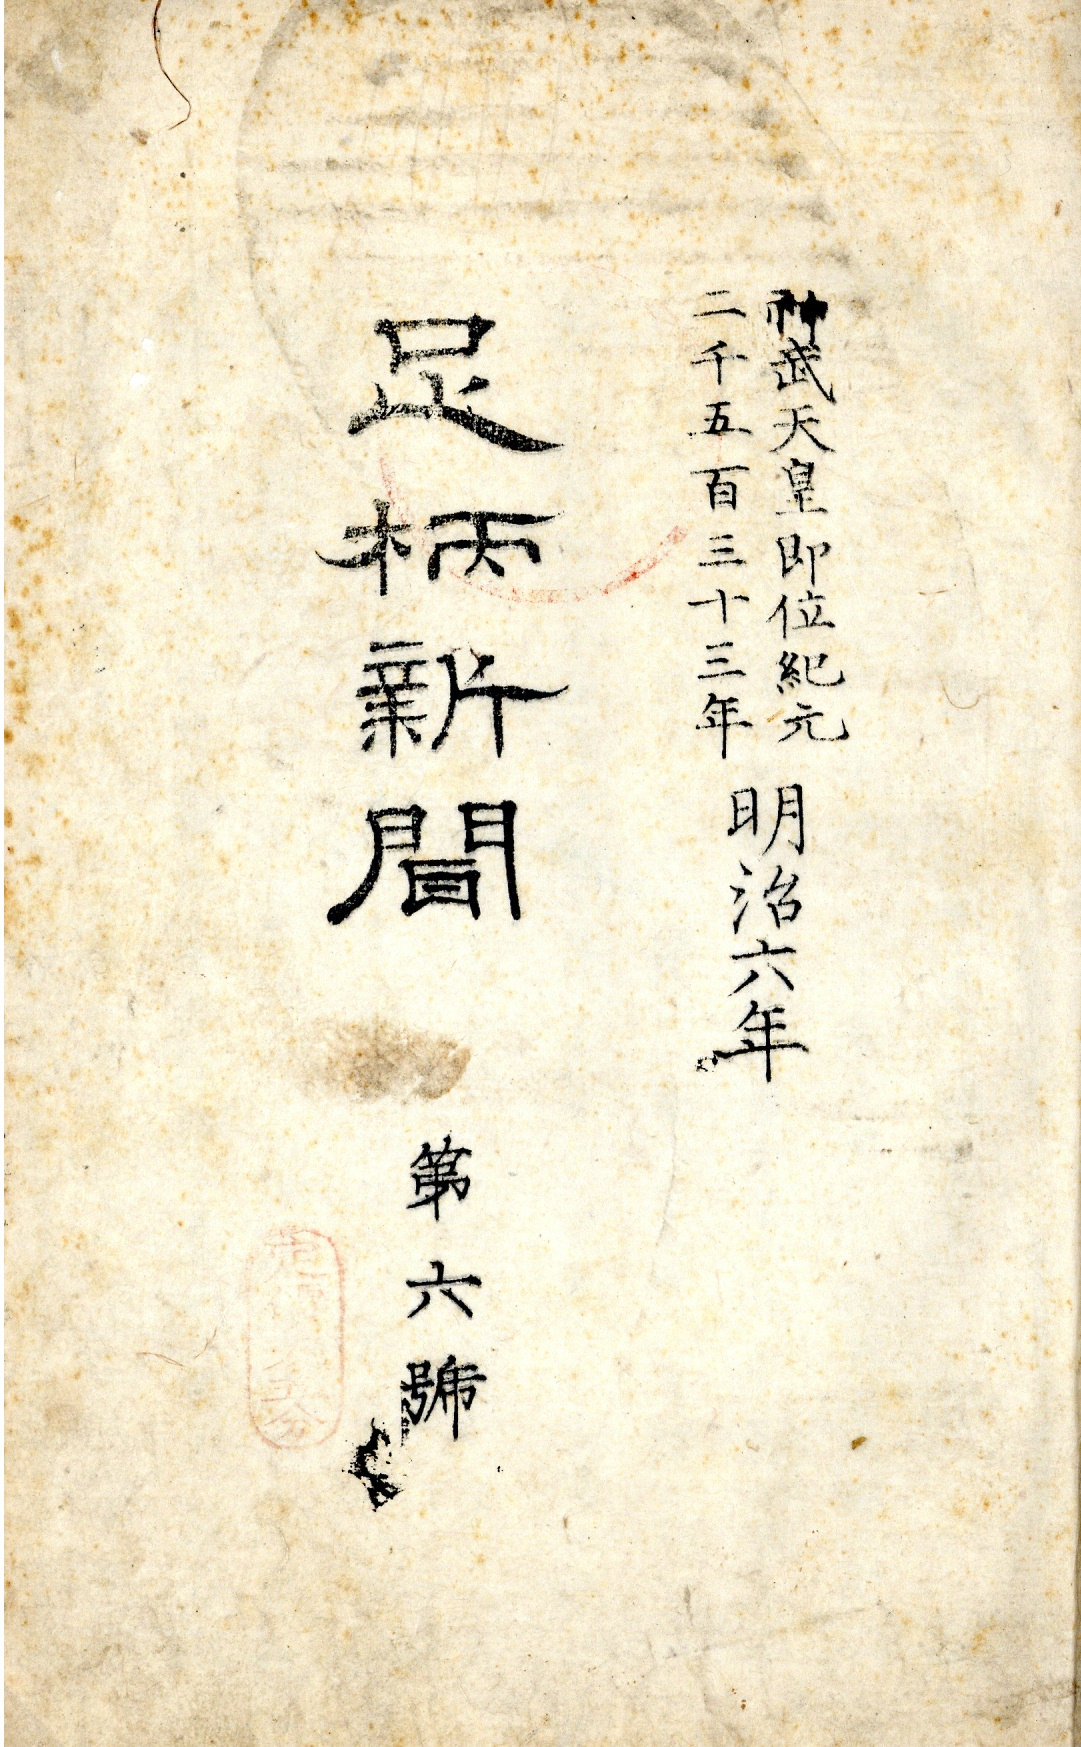 神武天皇即位紀元
二千五百三十三年
明治六年
足柄新聞
第六號